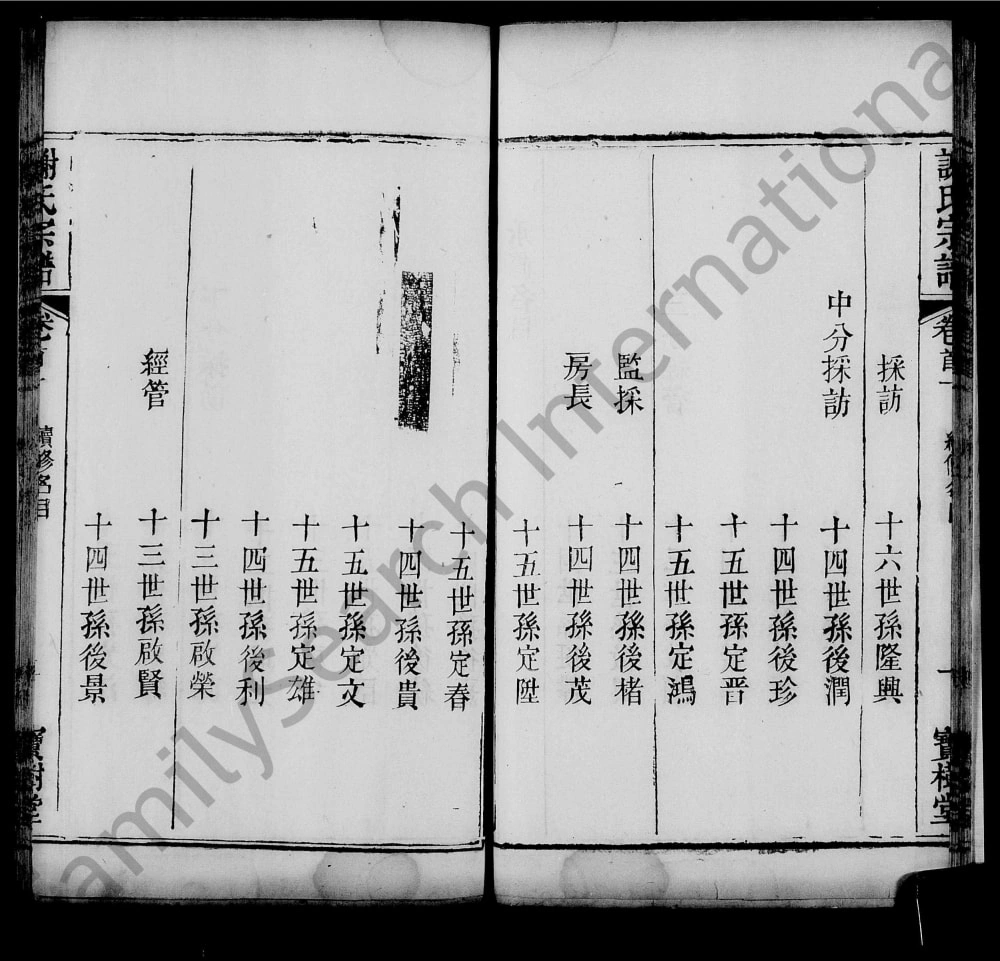 謝氏宗譜
卷首一
寶樹堂
採訪 十六世孫隆興
中分採訪 十四世孫後潤
十四世孫後珍
十五世孫定晋
十五世孫定鴻
監採 十四世孫後楮
房長 十四世孫後茂
十五世孫定陞
十五世孫定春
十四世孫後貴
十五世孫定文
十五世孫定雄
十四世孫後利
十三世孫啟榮
經管 十三世孫啟賢
十四世孫後景
謝氏宗譜
卷首一
續修名目
寶樹堂
FamilySearch International